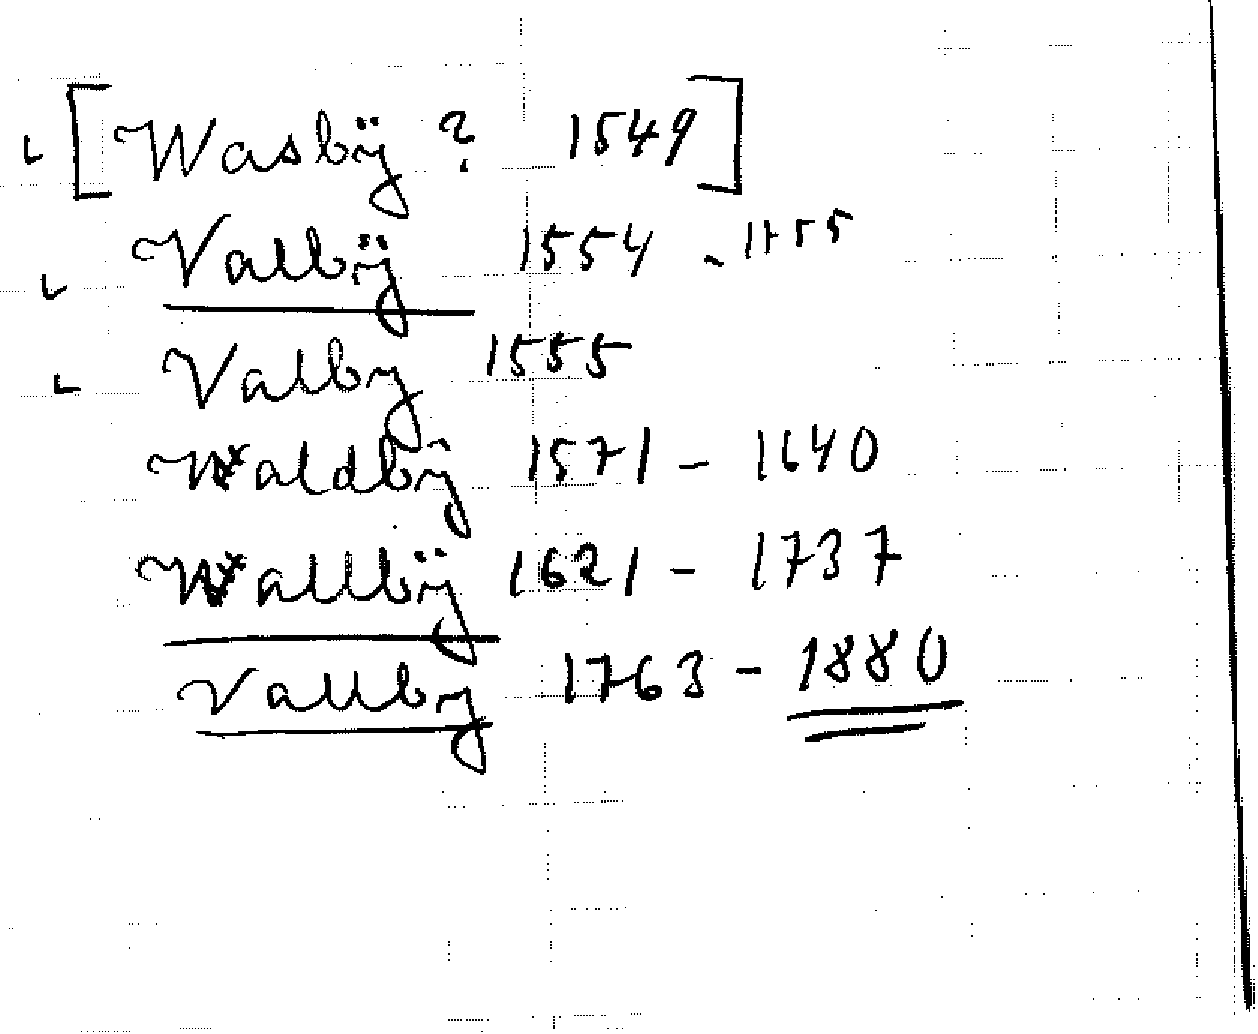 [Wasbÿ ? 1549]
Valbÿ 1554 - 1555
Valby 1555
Waldbÿ 1571 - 1640
Wallbÿ 1621 - 1737
Vallby 1763 - 1880